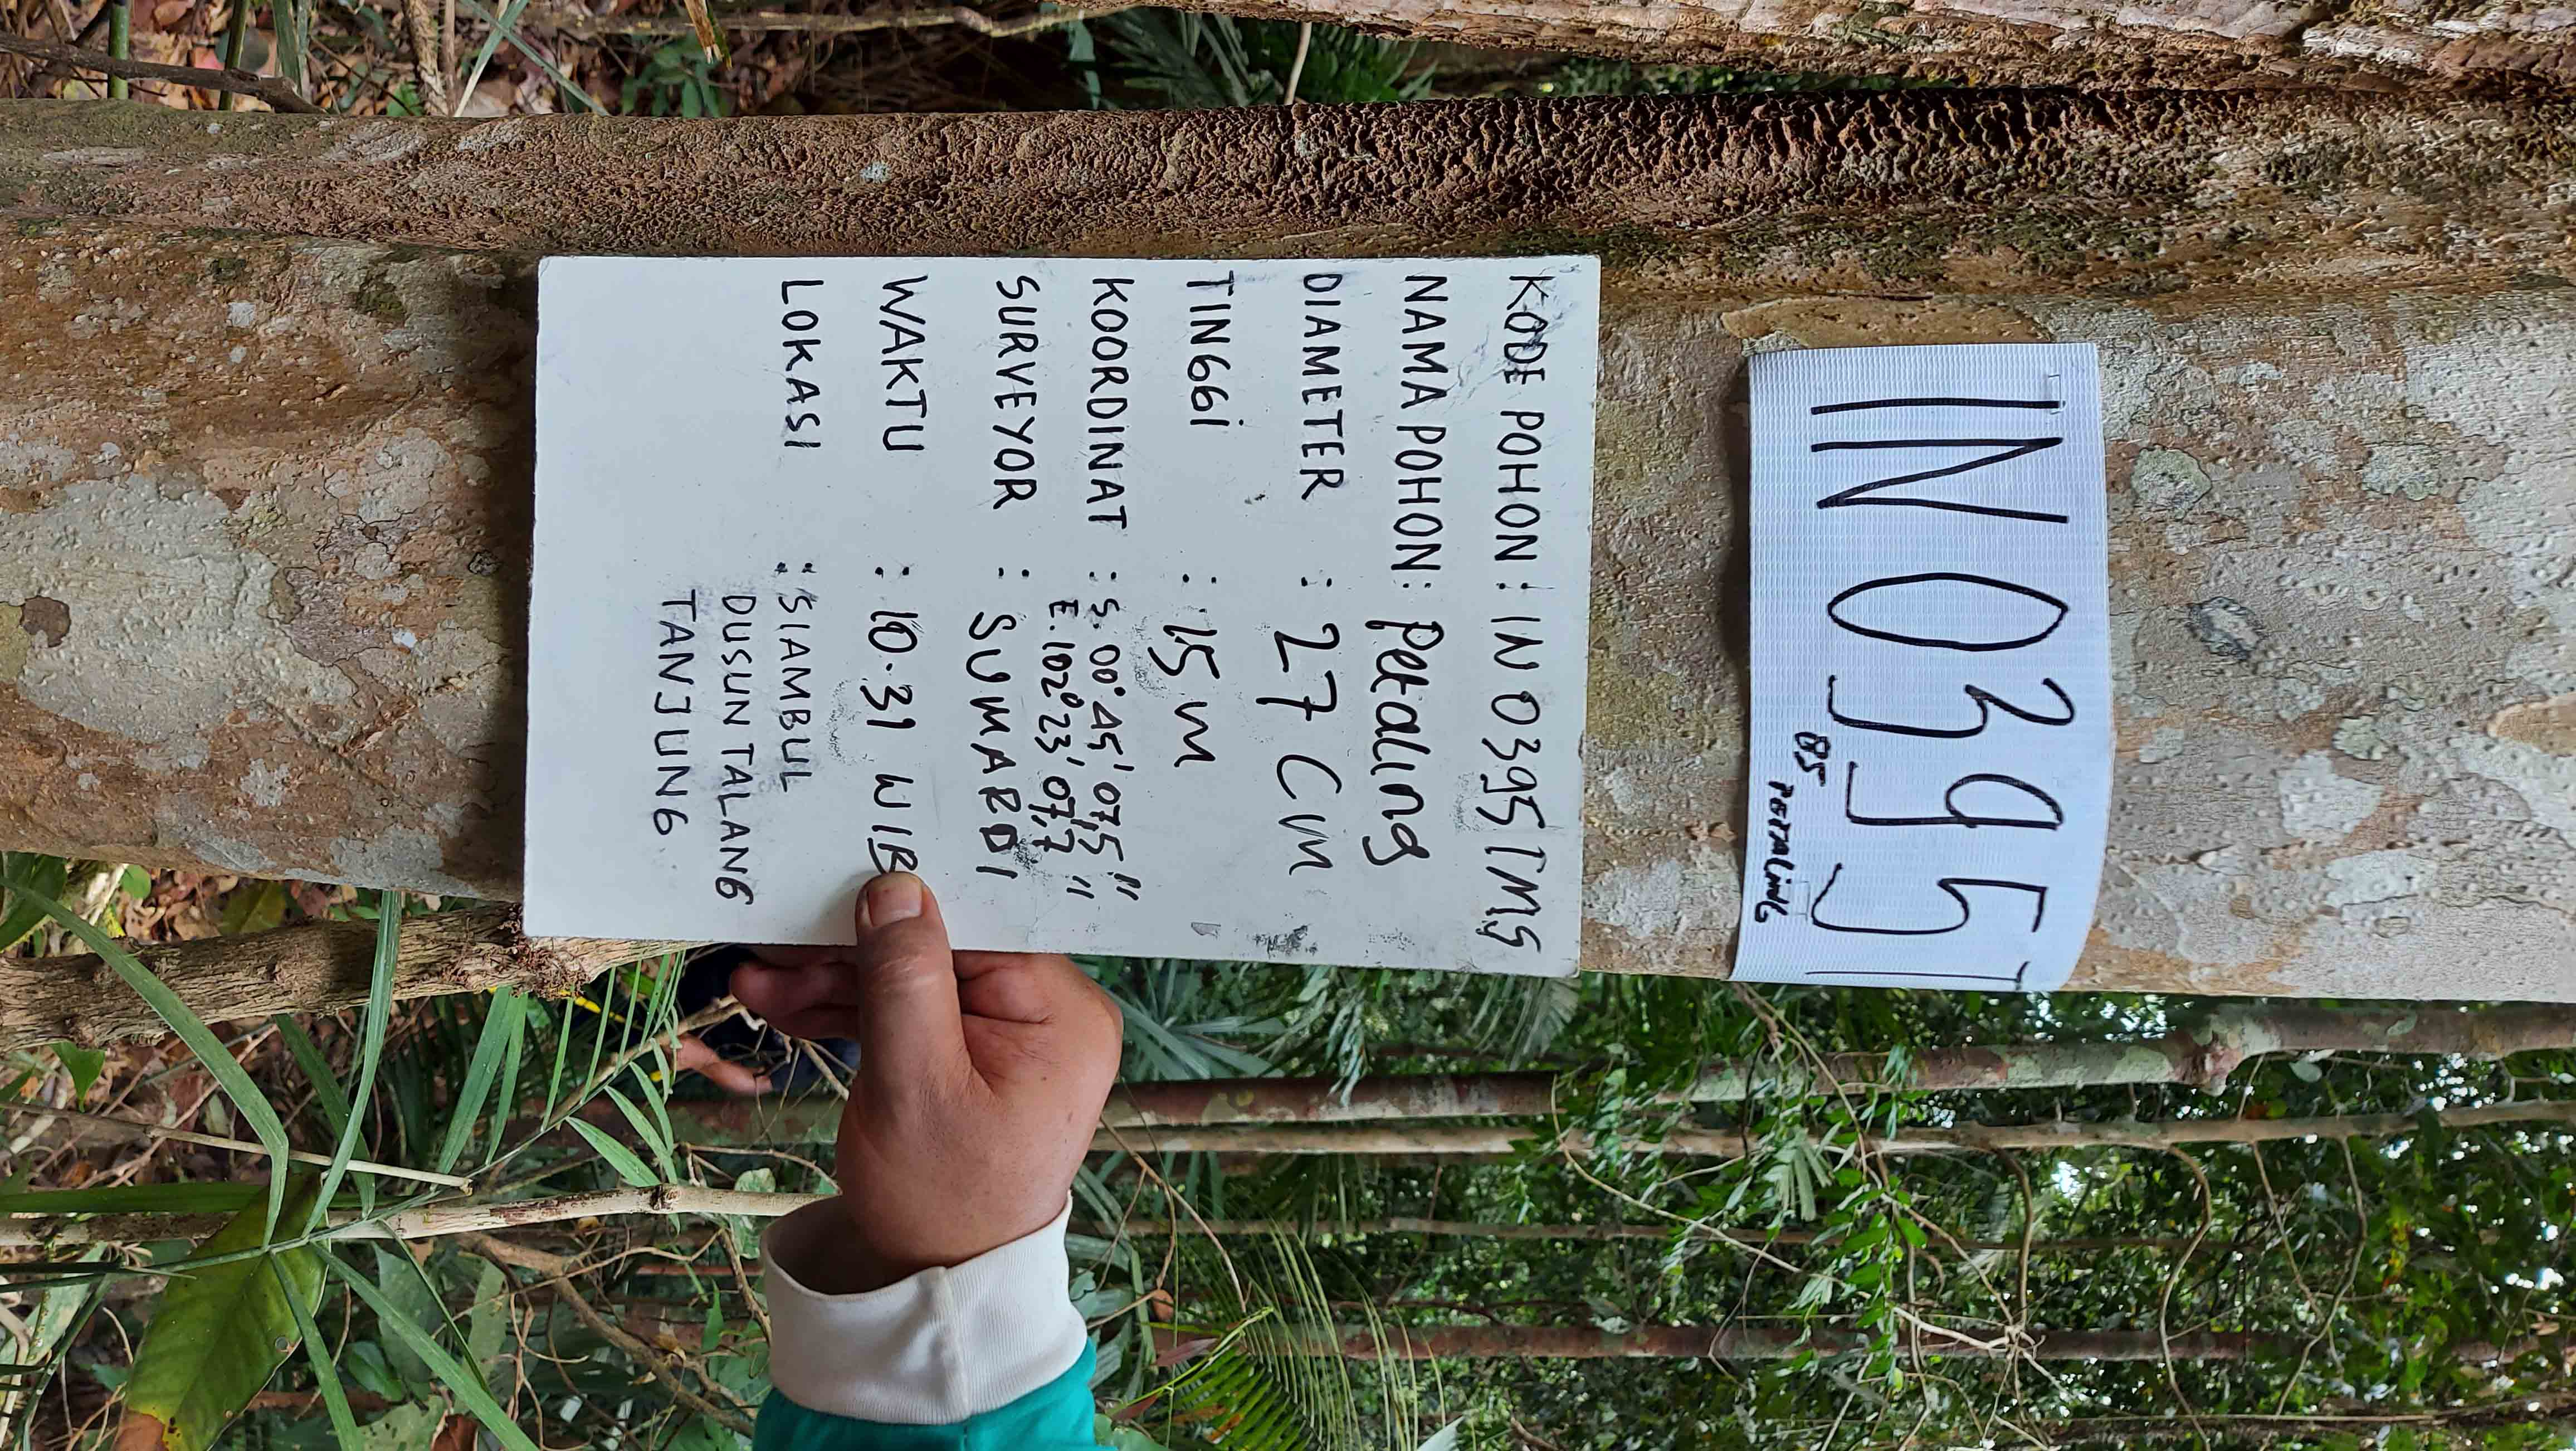 IN 0395T
85
PETALING
KODE POHON : IN 0395 TMS
NAMA POHON : Petaling
DIAMETER : 27 Cm
TINGGi : 15 m
KOORDINAT : S. 00° 45' 07,5"
E. 102° 23' 07,7"
SURVEYOR : SUMARDI
WAKTU : 10.31 WIB
LOKASI : SIAMBUL
DUSUN TALANG
TANJUNG